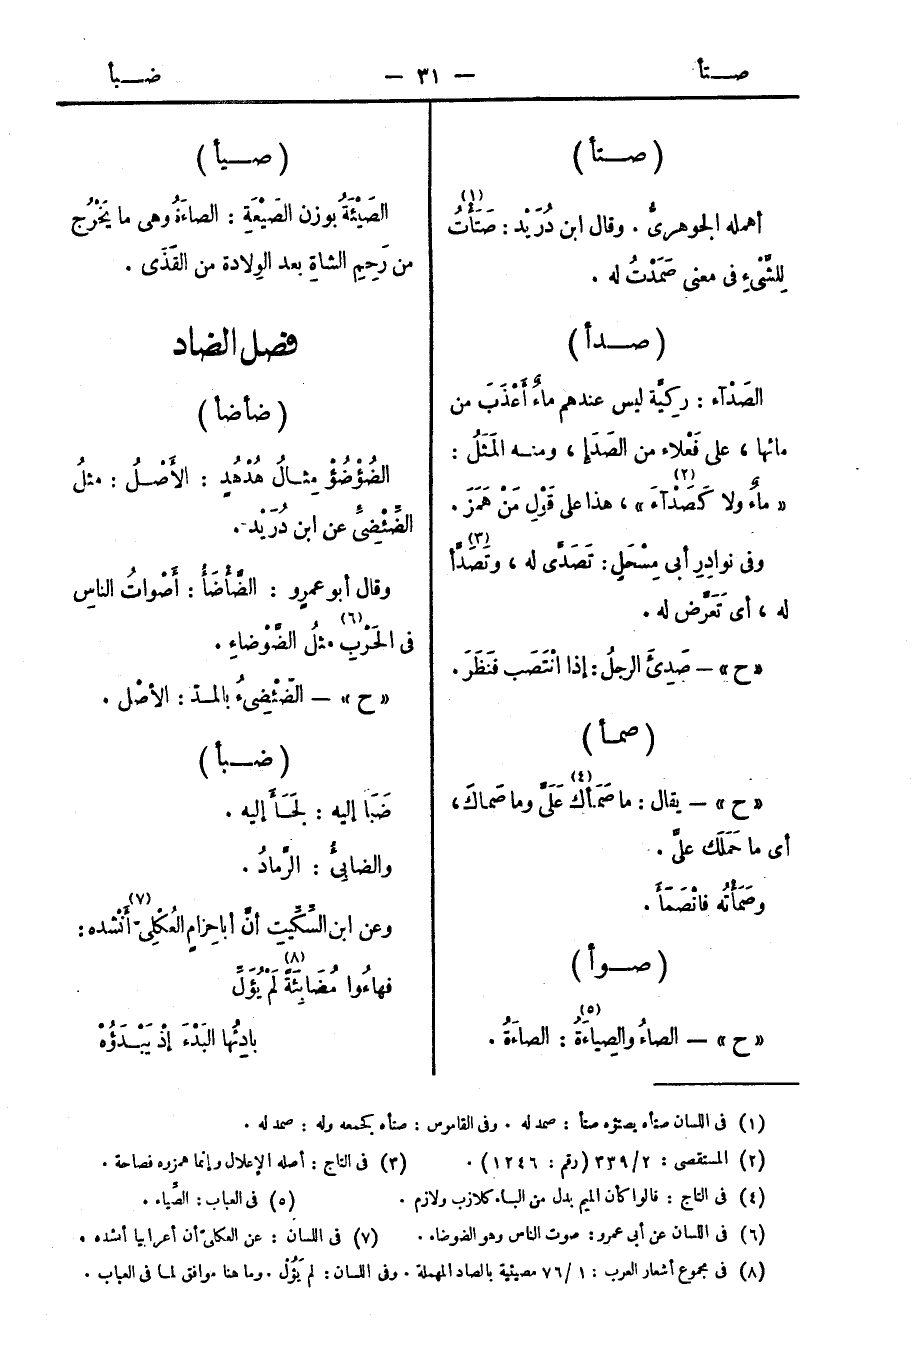 صــتأ
— ٣١ —
ضــبأ
(صــتأ)
أهمله الجوهرىُّ . وقال ابن دُرَيْد : صَتَأْتُ (١)
لِلشَّىْءِ فى معنى صَمَدْتُ له .
(صــدأ)
الصَدْآء : ركِيَّة ليس عندهم ماءٌ أَعْذَبَ من
مائها ، على فَعْلاء من الصَدَإِ ، ومنــه المَثَلُ :
« ماءٌ ولا كَصَدْآءَ » (٢) ، هذا على قَوْلِ مَنْ هَمَزَ .
وفى نوادِرِ أبى مِسْحَلٍ : تَصَدَّى له ، وتَصَدَّأَ (٣)
له ، أى تَعَرَّض له .
« ح » — صَدِئَ الرجلُ : إذا انْتَصَب فَنَظَرَ .
(صمأ)
« ح » — يقال : ما صَمَأَكَ (٤) عَلَىَّ وما صَماكَ ،
أى ما حَمَلَك علىَّ .
وصَمَأْتُه فانْصَمَأَ .
(صــوأ)
« ح » — الصاءُ والصِياءَةُ (٥) : الصاءَةُ .
(صــيأ)
الصَيْئَةُ بوزن الصَيْعَةِ : الصاءَةُ وهى ما يَخْرُج
من رَحِمِ الشاةِ بعد الوِلادة من القَذَى .
فصل الضاد
(ضأضأ)
الضُؤْضُؤُ مِثــالُ هُدْهُدٍ : الأَصْــلُ : مثلُ
الضِّئْضِئِ عن ابن دُرَيْد .
وقال أبو عمرٍو : الضَّأْضَأُ : أَصْواتُ الناسِ
فى الحَرْبِ (٦) مثلُ الضَّوْضاءِ .
« ح » — الضِّئْضِىءُ بالمــدّ : الأصْل .
(ضــبأ)
ضَبَا إليه : لَجَــأَ إليه .
والضابِئُ : الرَّمادُ .
وعن ابن السِّكِّيتِ أنَّ أبا حِزامٍ العُكْلِىّ (٧) أَنْشده :
فهاءُوا مُضَابِئَةً (٨) لَمْ يُؤَلَّ
بادِئُها البَدْءَ إذْ يَبْــدَؤُهْ
(١) فى اللسان صتأه يصتؤه صتأ : صمد له . وفى القاموس : صتأه كجمعه وله : صمد له .
(٢) المستقصى : ٣٣٩/٢ (رقم : ١٢٤٦) . (٣) فى التاج : أصله الإعلال وإنما همزوه فصاحة .
(٤) فى التاج : قالوا كأن الميم بدل من البــاء كلازب ولازم . (٥) فى العباب : الصَّياء .
(٦) فى اللسان عن أبى عمرو : صوت الناس وهو الضوضاء . (٧) فى اللسان : عن العكلىّ أن أعرابيا أنشده .
(٨) فى مجموع أشعار العرب : ٧٦/١ مصيئية بالصاد المهملة . وفى اللسان : لم يَؤُلْ . وما هنا موافق لما فى العباب .